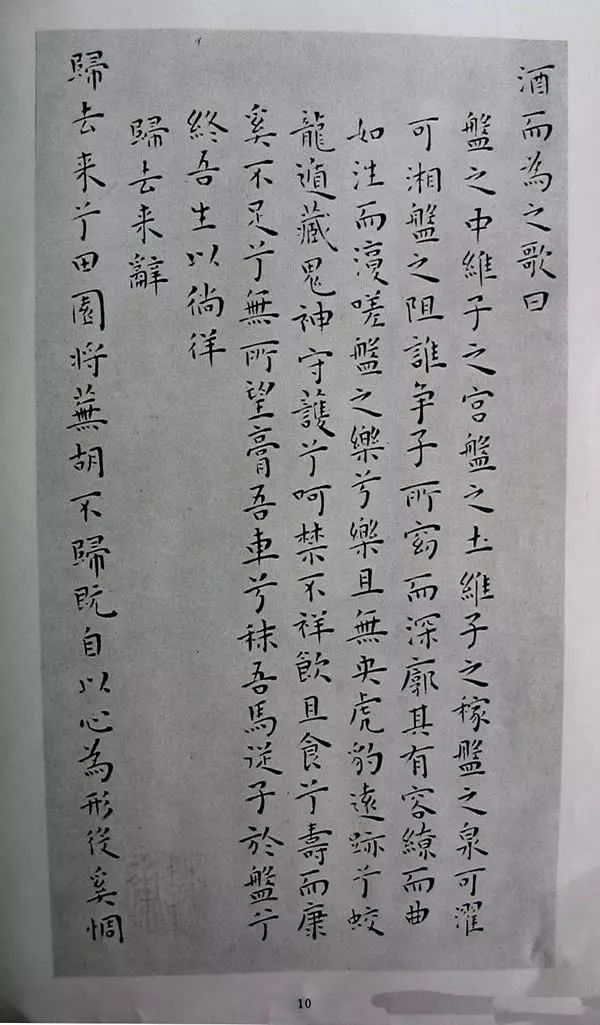 酒而為之歌曰
盤之中維子之宮盤之土維子之稼盤之泉可濯
可湘盤之阻誰争子所窈而深廓其有容繚而曲
如往而復嗟盤之樂兮樂且無央虎豹遠跡兮蛟
龍遁藏鬼神守護兮呵禁不祥飲且食兮壽而康
奚不足兮無所望膏吾車兮秣吾馬從子於盤兮
終吾生以徜徉
歸去来辭
歸去来兮田園将蕪胡不歸既自以心為形從奚惆
10